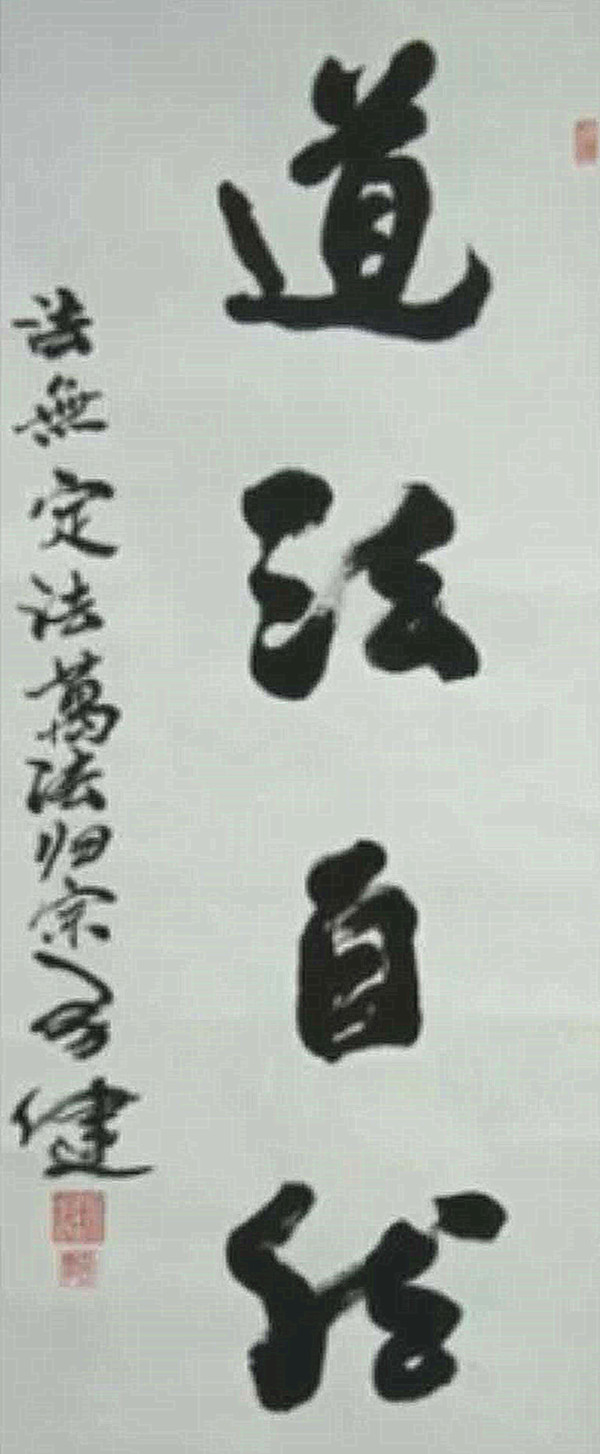 道法自然
法無定法萬法归宗
健